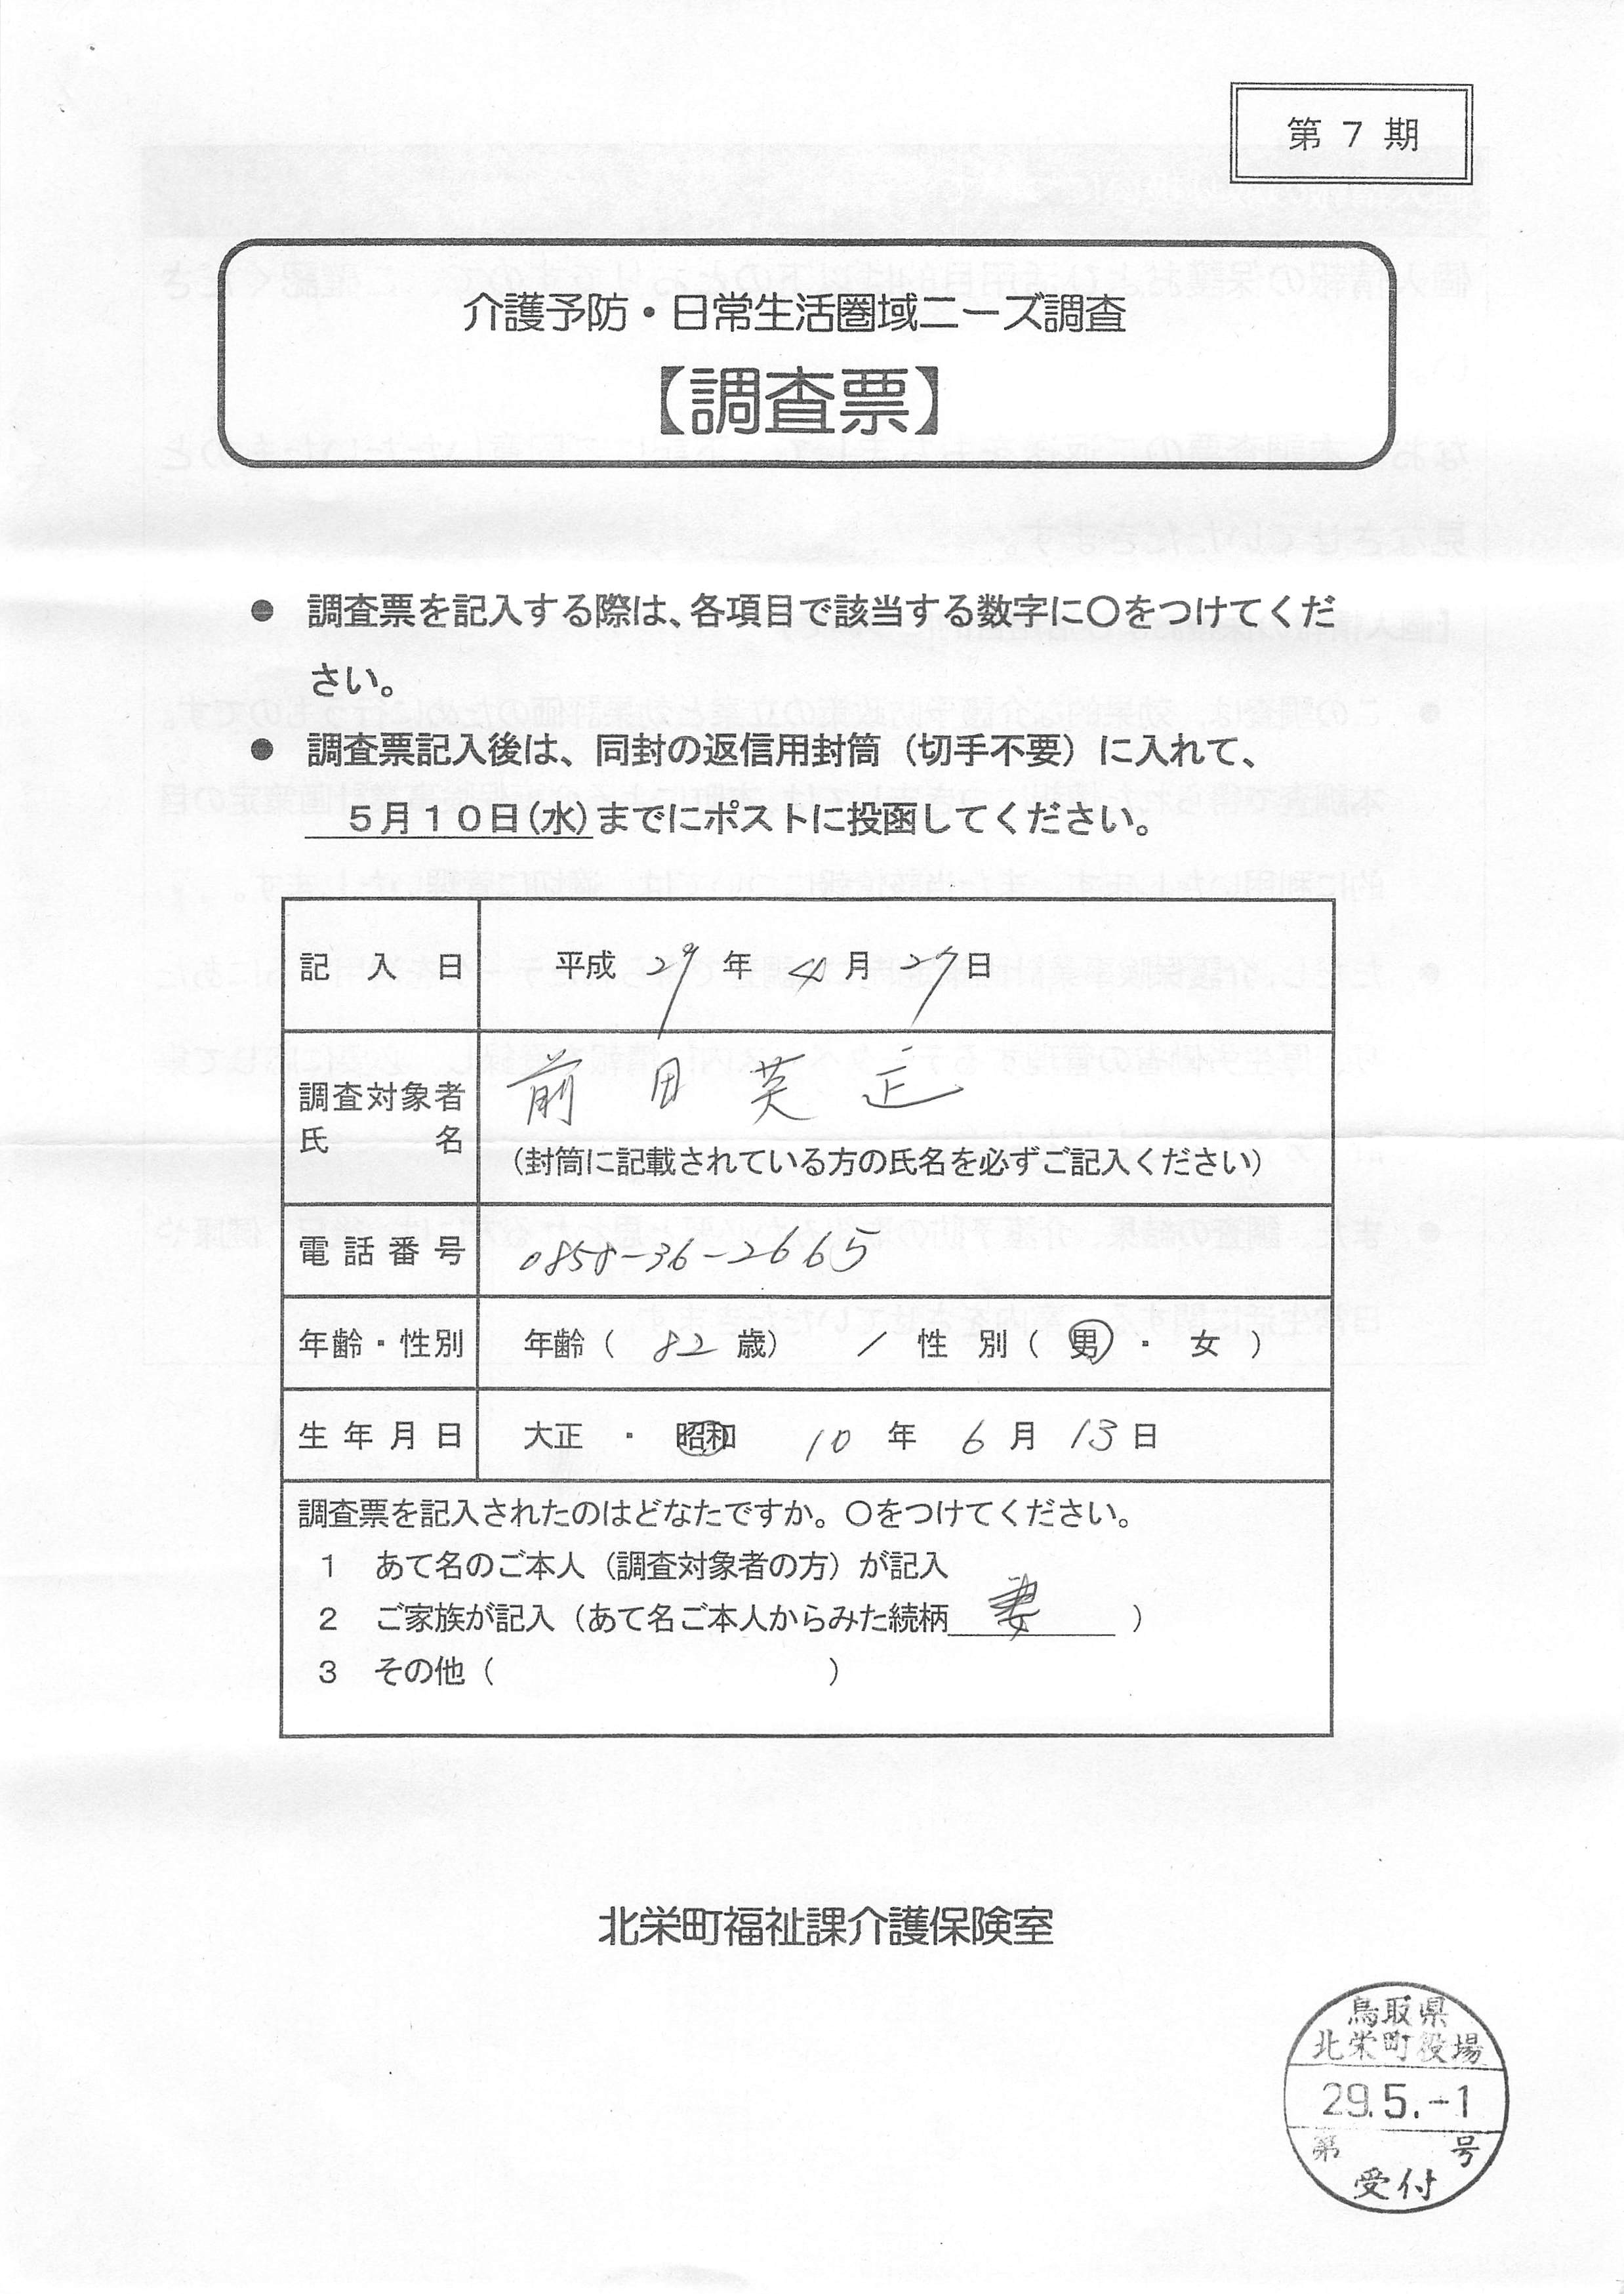 第 7 期
介護予防・日常生活圏域ニーズ調査
【調査票】
● 調査票を記入する際は、各項目で該当する数字に〇をつけてくだ
さい。
● 調査票記入後は、同封の返信用封筒（切手不要）に入れて、
５月１０日(水)までにポストに投函してください。
記入日 平成 29 年 4 月 27 日
調査対象者 前田英正
氏名
（封筒に記載されている方の氏名を必ずご記入ください）
電話番号 0858-36-2665
年齢・性別 年齢（ 82 歳） ／ 性別（ 男 ・ 女 ）
生年月日 大正 ・ 昭和 10 年 6 月 13 日
調査票を記入されたのはどなたですか。〇をつけてください。
1 あて名のご本人（調査対象者の方）が記入
2 ご家族が記入（あて名ご本人からみた続柄 妻 ）
3 その他（ ）
北栄町福祉課介護保険室
鳥取県
北栄町役場
29.5.-1
第 号
受付